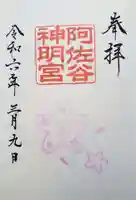 奉拝
阿佐谷
神明宮
令和六年三月九日